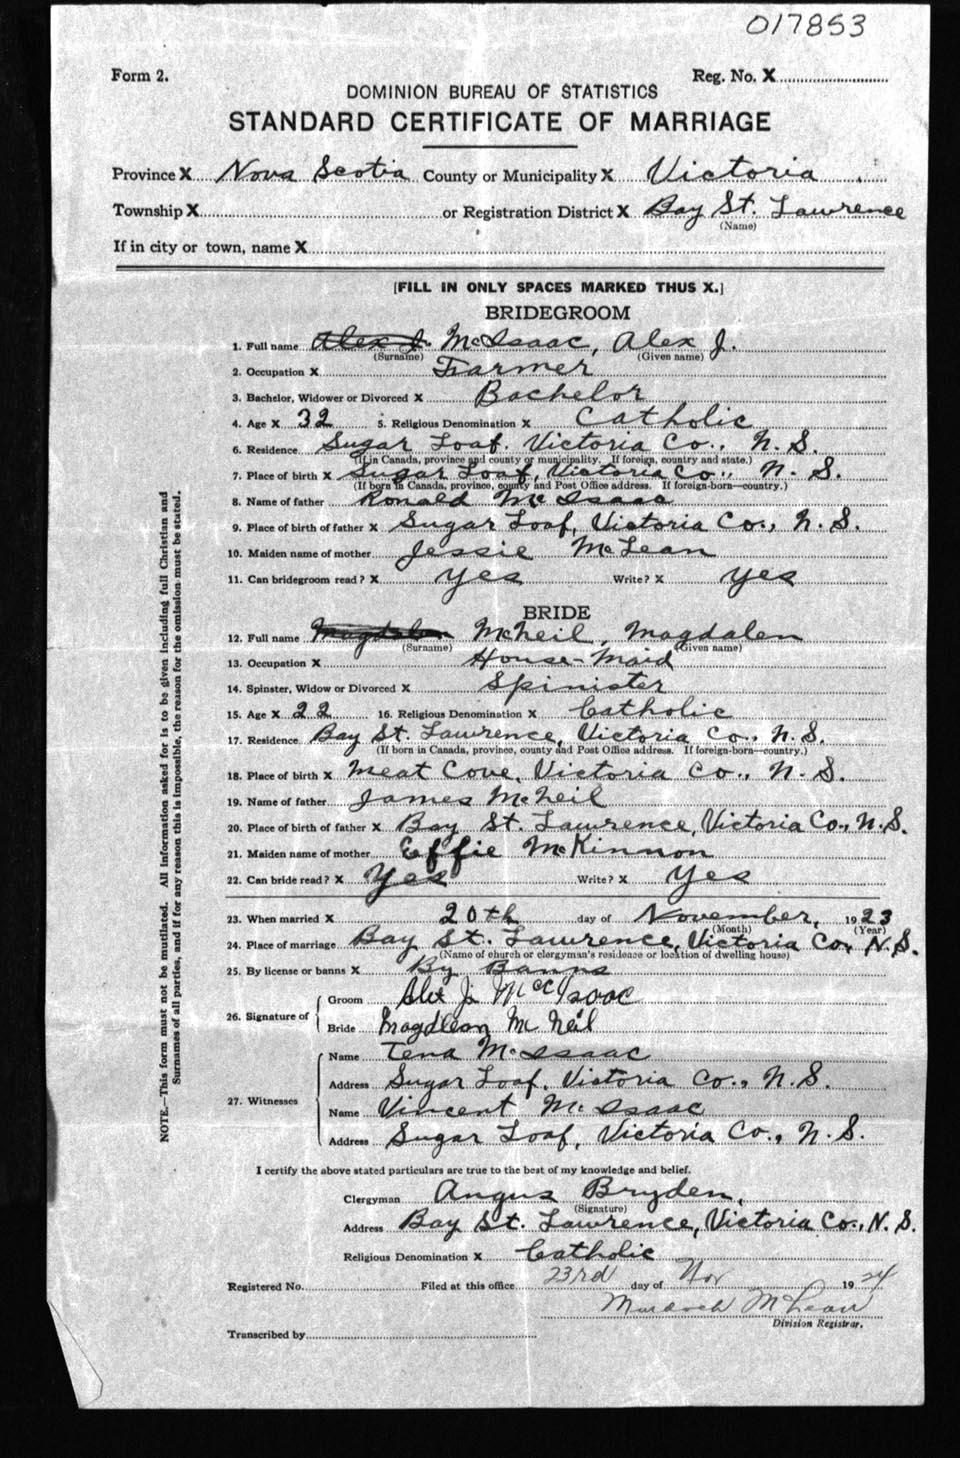 017853
Form 2. Reg. No. X
DOMINION BUREAU OF STATISTICS
STANDARD CERTIFICATE OF MARRIAGE
Province X Nova Scotia County or Municipality X Victoria
Township X or Registration District X Bay St. Lawrence
(Name)
If in city or town, name X
[FILL IN ONLY SPACES MARKED THUS X.]
BRIDEGROOM
1. Full name Alex J. McIsaac, Alex J.
(Surname) (Given name)
2. Occupation X Farmer
3. Bachelor, Widower or Divorced X Bachelor
4. Age X 32 5. Religious Denomination X Catholic
6. Residence Sugar Loaf. Victoria Co., N.S.
(If in Canada, province and county or municipality. If foreign, country and state.)
7. Place of birth X Sugar Loaf, Victoria Co., N.S.
(If born in Canada, province, county and Post Office address. If foreign-born—country.)
8. Name of father Ronald McIsaac
9. Place of birth of father X Sugar Loaf, Victoria Co., N.S.
10. Maiden name of mother Jessie McLean
11. Can bridegroom read? X Yes Write? X Yes
BRIDE
12. Full name Magdalen McNeil, Magdalen
(Surname) (Given name)
13. Occupation X House-Maid
14. Spinster, Widow or Divorced X Spinister
15. Age X 22 16. Religious Denomination X Catholic
17. Residence Bay St. Lawrence, Victoria Co., N.S.
(If born in Canada, province, county and Post Office address. If foreign-born—country.)
18. Place of birth X Meat Cove, Victoria Co., N.S.
19. Name of father James McNeil
20. Place of birth of father X Bay St. Lawrence, Victoria Co., N.S.
21. Maiden name of mother Effie McKinnon
22. Can bride read? X Yes Write? X Yes
23. When married X 20th day of November, 1923
(Month) (Year)
24. Place of marriage Bay St. Lawrence, Victoria Co, N.S.
(Name of church or clergyman's residence or location of dwelling house)
25. By license or banns X By Banns
26. Signature of
Groom Alex J. McIsaac
Bride Magdlean McNeil
27. Witnesses
Name Tena McIsaac
Address Sugar Loaf, Victoria Co., N.S.
Name Vincent McIsaac
Address Sugar Loaf, Victoria Co., N.S.
I certify the above stated particulars are true to the best of my knowledge and belief.
Clergyman Angus Bryden,
(Signature)
Address Bay St. Lawrence, Victoria Co., N.S.
Religious Denomination X Catholic
Registered No. Filed at this office 23rd day of Nov 1924
Murdoch McLean
Division Registrar.
Transcribed by
NOTE.—This form must not be mutilated. All information asked for is to be given including full Christian and
Surnames of all parties, and if for any reason this is impossible, the reason for the omission must be stated.